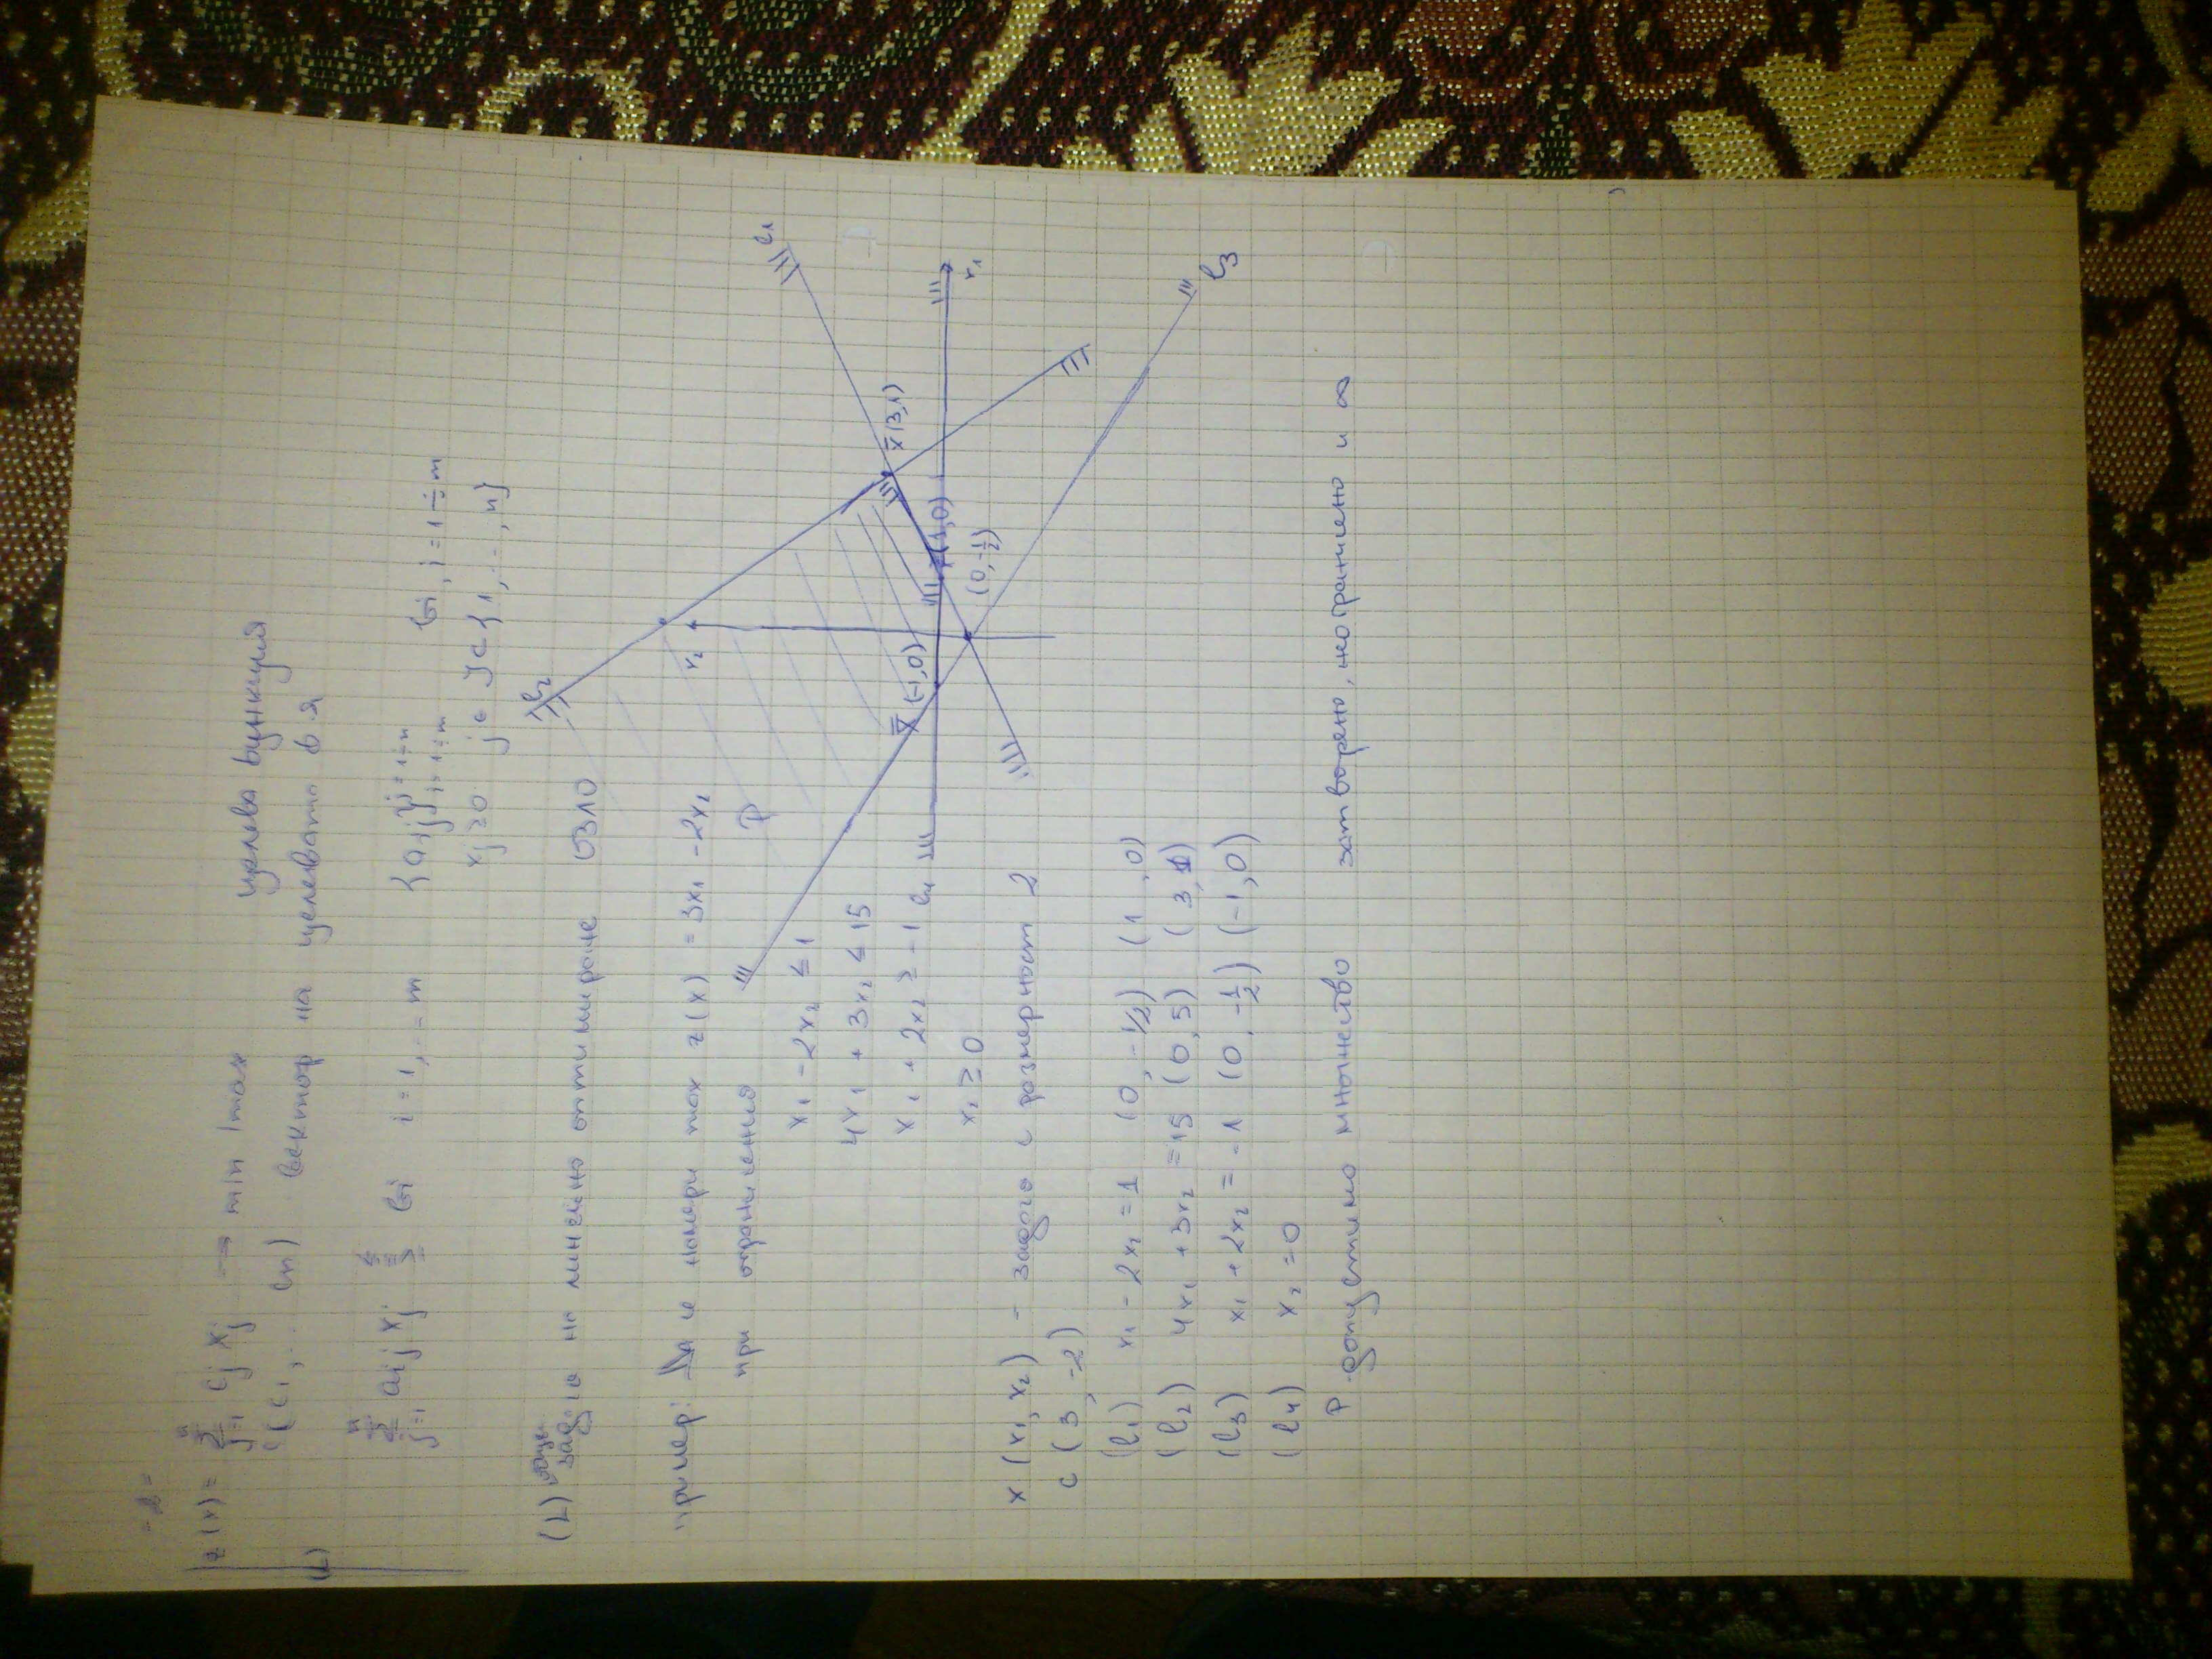 - 2 -
z(x) = n∑j=1 cj xj → min/max целева функция
c(c1,... cn) вектор на целевата ф-я
(L)
n∑j=1 aij xj ≤ = ≥ bi i = 1,..m {aij} j=1÷n i=1÷m bi, i = 1÷m
xj ≥ 0 j ∈ J ⊂ {1,..., n}
(L) обща задача на линейно оптимиране ОЗЛО
пример: Да се намери max z(x) = 3x1 - 2x2
при ограничения
x1 - 2x2 ≤ 1
4x1 + 3x2 ≤ 15
x1 + 2x2 ≥ -1
x2 ≥ 0
l2
x2
P
l1
x̄(3,1)
x1
(1,0)
(0,-1/2)
(-1,0)
l4
l3
x (x1, x2) - задача с размерност 2
c (3, -2)
(l1) x1 - 2x2 = 1 (0, -1/2) (1, 0)
(l2) 4x1 + 3x2 = 15 (0, 5) (3, 1)
(l3) x1 + 2x2 = -1 (0, -1/2) (-1, 0)
(l4) x2 = 0
P - допустимо множество затворено, неограничено и ∞